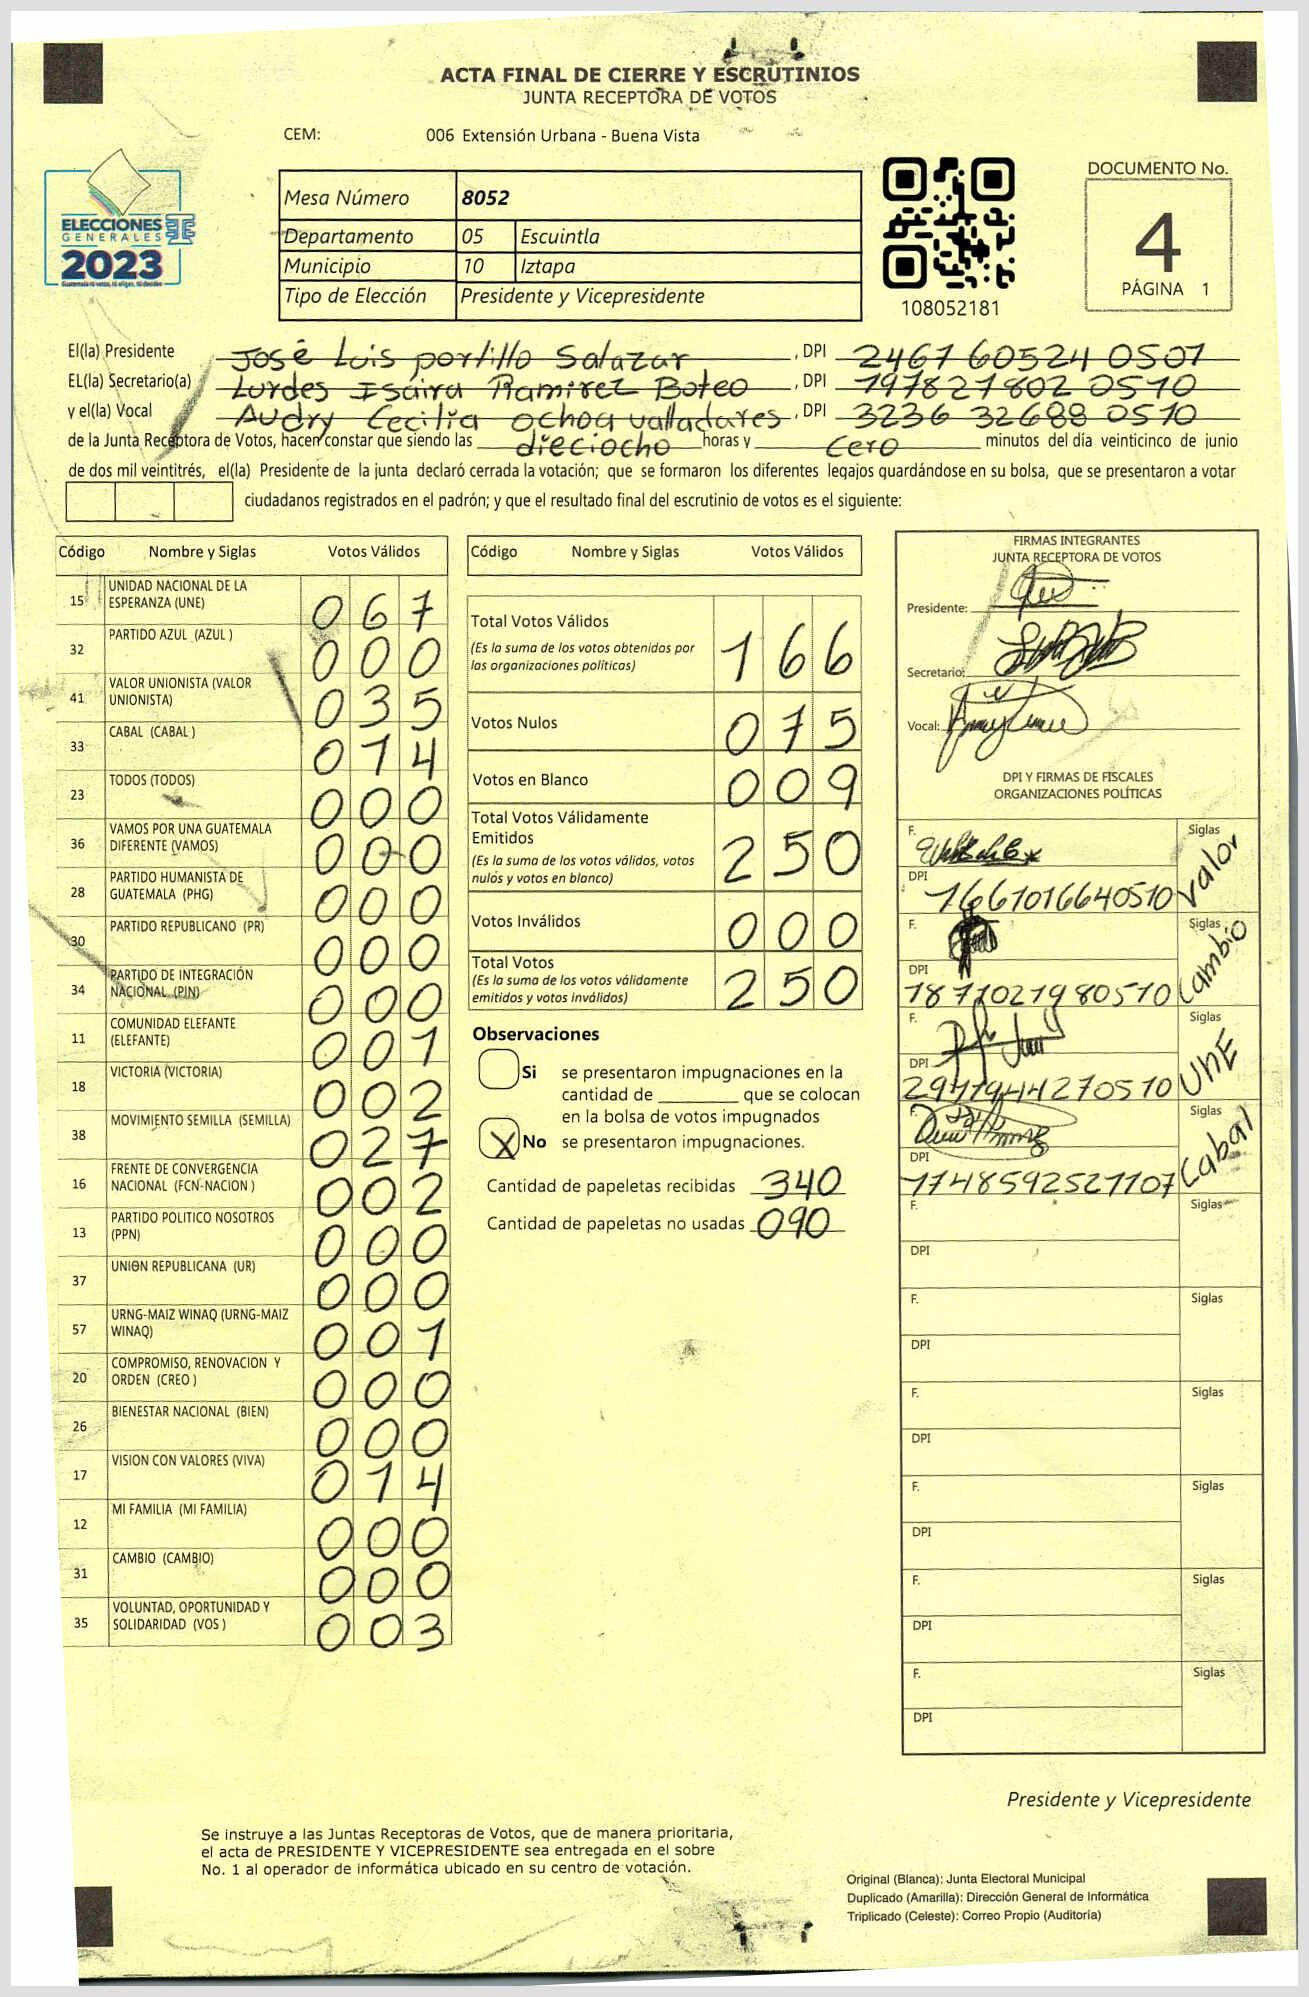 ACTA FINAL DE CIERRE Y ESCRUTINIOS
JUNTA RECEPTORA DE VOTOS
CEM: 006 Extensión Urbana - Buena Vista
DOCUMENTO No.
4
PÁGINA 1
ELECCIONES
GENERALES
2023
Mesa Número 8052
Departamento 05 Escuintla
Municipio 10 Iztapa
Tipo de Elección Presidente y Vicepresidente
108052181
El(la) Presidente José Luis portillo Salazar, DPI 2467 60524 0501
EL(la) Secretario(a) Lurdes Isaira Ramirez Boteo, DPI 197827802 0510
y el(la) Vocal Audry Cecilia ochoa valladares, DPI 3236 32688 0510
de la Junta Receptora de Votos, hacen constar que siendo las dieciocho horas y cero minutos del día veinticinco de junio
de dos mil veintitrés, el(la) Presidente de la junta declaró cerrada la votación; que se formaron los diferentes legajos quardándose en su bolsa, que se presentaron a votar
ciudadanos registrados en el padrón; y que el resultado final del escrutinio de votos es el siguiente:
Código Nombre y Siglas Votos Válidos
15 UNIDAD NACIONAL DE LA ESPERANZA (UNE) 067
32 PARTIDO AZUL (AZUL ) 000
41 VALOR UNIONISTA (VALOR UNIONISTA) 035
33 CABAL (CABAL ) 014
23 TODOS (TODOS) 000
36 VAMOS POR UNA GUATEMALA DIFERENTE (VAMOS) 000
28 PARTIDO HUMANISTA DE GUATEMALA (PHG) 000
30 PARTIDO REPUBLICANO (PR) 000
34 PARTIDO DE INTEGRACIÓN NACIONAL (PIN) 000
11 COMUNIDAD ELEFANTE (ELEFANTE) 001
18 VICTORIA (VICTORIA) 002
38 MOVIMIENTO SEMILLA (SEMILLA) 027
16 FRENTE DE CONVERGENCIA NACIONAL (FCN-NACION ) 002
13 PARTIDO POLITICO NOSOTROS (PPN) 000
37 UNION REPUBLICANA (UR) 000
57 URNG-MAIZ WINAQ (URNG-MAIZ WINAQ) 001
20 COMPROMISO, RENOVACION Y ORDEN (CREO ) 000
26 BIENESTAR NACIONAL (BIEN) 000
17 VISION CON VALORES (VIVA) 014
12 MI FAMILIA (MI FAMILIA) 000
31 CAMBIO (CAMBIO) 000
35 VOLUNTAD, OPORTUNIDAD Y SOLIDARIDAD (VOS ) 003
Código Nombre y Siglas Votos Válidos
Total Votos Válidos 166
(Es la suma de los votos obtenidos por
las organizaciones políticas)
Votos Nulos 075
Votos en Blanco 009
Total Votos Válidamente
Emitidos 250
(Es la suma de los votos válidos, votos
nulos y votos en blanco)
Votos Inválidos 000
Total Votos 250
(Es la suma de los votos válidamente
emitidos y votos inválidos)
Observaciones
Si se presentaron impugnaciones en la
cantidad de ________ que se colocan
en la bolsa de votos impugnados
X No se presentaron impugnaciones.
Cantidad de papeletas recibidas 340
Cantidad de papeletas no usadas 090
FIRMAS INTEGRANTES
JUNTA RECEPTORA DE VOTOS
Presidente:
Secretario:
Vocal:
DPI Y FIRMAS DE FISCALES
ORGANIZACIONES POLÍTICAS
F. Siglas valor
DPI 1661016640510
F. Siglas Cambio
DPI 1871021980510
F. Siglas UNE
DPI 2941944270510
F. Siglas Cabal
DPI 1748592521107
F. Siglas
DPI
F. Siglas
DPI
F. Siglas
DPI
F. Siglas
DPI
F. Siglas
DPI
F. Siglas
DPI
Presidente y Vicepresidente
Se instruye a las Juntas Receptoras de Votos, que de manera prioritaria,
el acta de PRESIDENTE Y VICEPRESIDENTE sea entregada en el sobre
No. 1 al operador de informática ubicado en su centro de votación.
Original (Blanca): Junta Electoral Municipal
Duplicado (Amarilla): Dirección General de Informática
Triplicado (Celeste): Correo Propio (Auditoría)